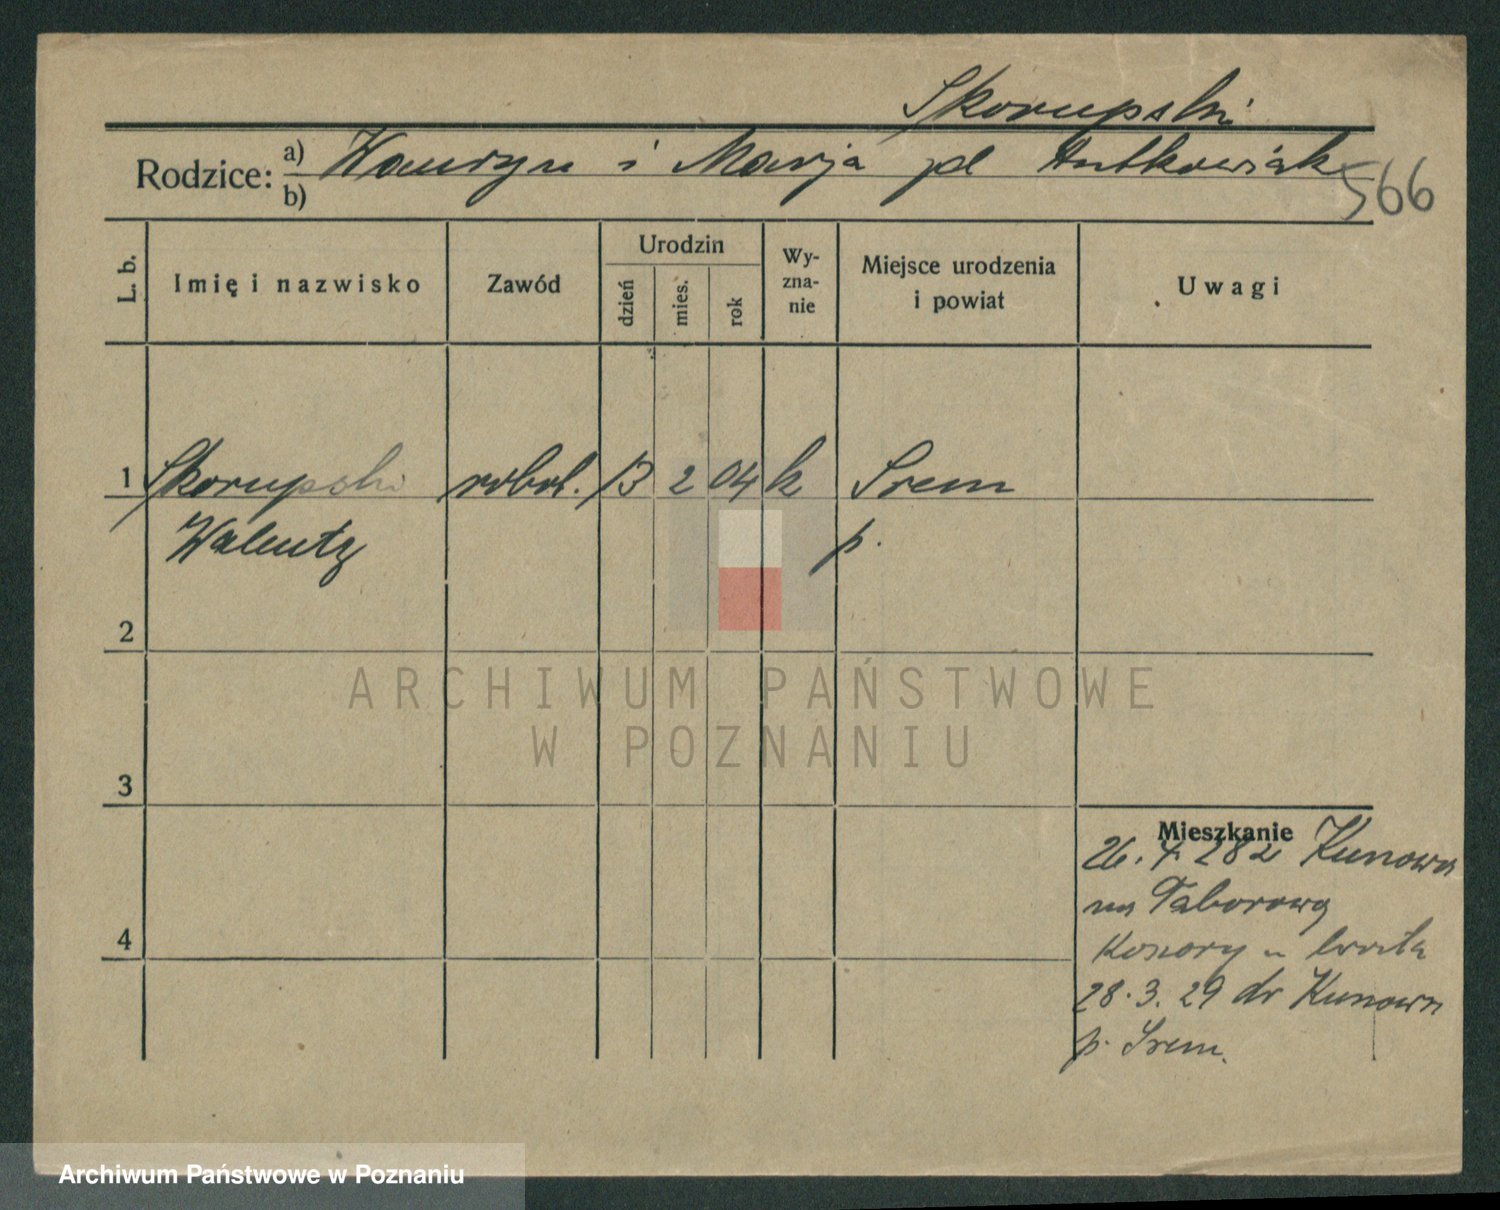 Skorupski
Rodzice: a) Wawrzyn i Marja zd Antkowiak
b)
566
L. b.
Imię i nazwisko
Zawód
Urodzin
dzień
mies.
rok
Wy-
zna-
nie
Miejsce urodzenia
i powiat
Uwagi
1 Skorupski robot. 13 2 04 k Śrem
Walenty p.
2
3
4
Mieszkanie
26. 4. 28 z Kunowa
na Taborową
Konary u
28. 3. 29 do Kunowa
p. Śrem.
ARCHIWUM PAŃSTWOWE
W POZNANIU
Archiwum Państwowe w Poznaniu